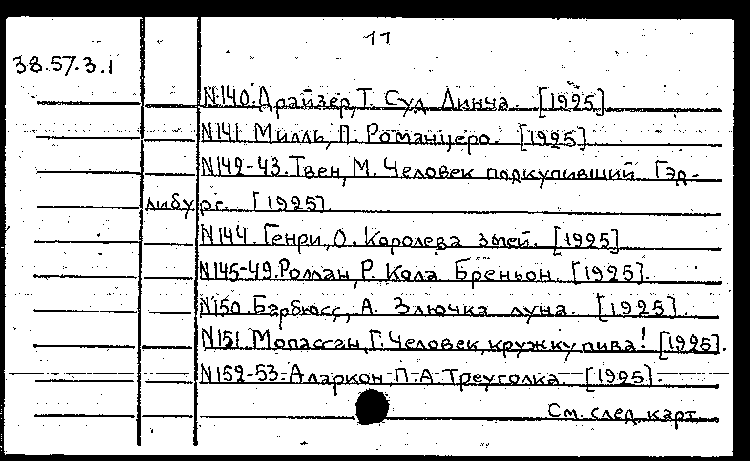 11
38.57.3.1
N140. Драйзер, Т. Суд Линча. [1925]
N141. Милль, П. Романцеро. [1925]
N142-43. Твен, М. Человек подкупивший Гэд-
либург. [1925]
N144. Генри, О. Королева змей. [1925]
N145-49. Роллан, Р. Кола Бреньон. [1925].
N150. Барбюсс, А. Злючка луна. [1925]
N151. Мопассан, Г. Человек, кружку пива! [1925].
N152-53. Аларкон, П.-А. Треуголка. [1925].
См. след. карт.